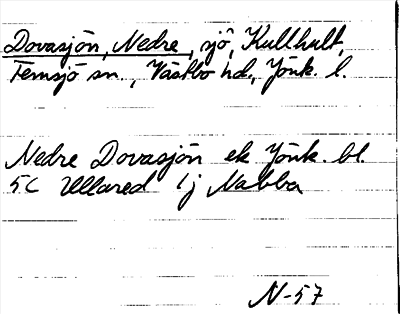 Dovasjön, Nedre, sjö, Kullhult,
Femsjö sn., Västbo hd., Jönk. l.
Nedre Dovasjön ek Jönk. bl.
5C Ullared 1j Nabba
N-57